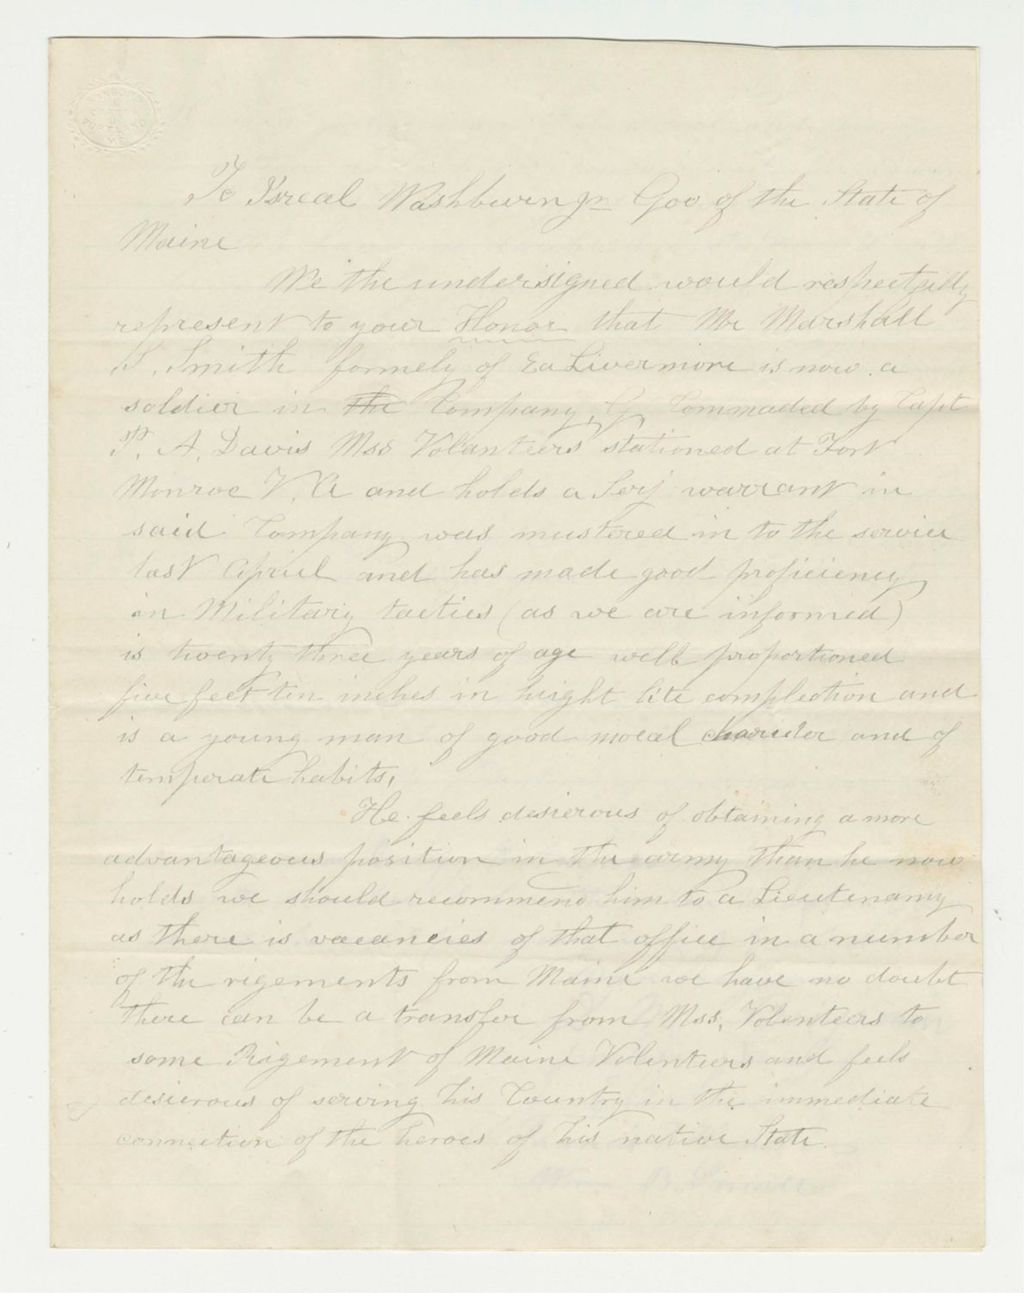 To Isreal Washburn Jr Gov of the State of
Maine
We the undersigned would respectfully
represent to your Honor that Mr Marshall
S. Smith formely of Ea Livermore is now a
soldier in the Company, G, Commaded by Capt
P. A. Davis Mss Volunteers stationed at Fort
Monroe V. A and holds a Serj warrant in
said Company was mustered in to the service
last April and has made good proficiency
in Military tactics (as we are informed)
is twenty three years of age well proportioned
five feet ten inches in hight lite complection and
is a young man of good moral character and of
temperate habits,
He feels desierous of obtaining a more
advantageous position in the army than he now
holds we should recommend him to a Lieutenancy
as there is vacancies of that office in a number
of the rigements from Maine we have no doubt
there can be a transfer from Mss, Volenteers to
some Rigement of Maine Volenteers and feels
desierous of serving his Country in the immediate
connection of the heroes of his native State.